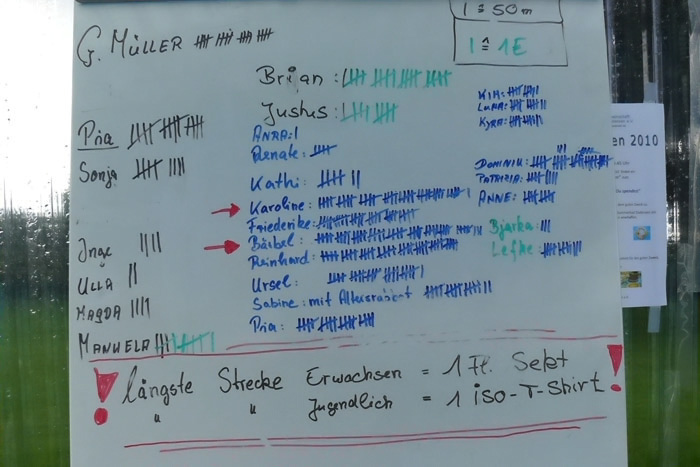 1 ≙ 50m
1 ≙ 1E
G. MÜLLER
Brian:
Justus:
Pia
Sonja
ANNA:
Renate:
Kathi:
Karoline:
Friederike:
Bärbel:
Reinhard:
Ursel:
Sabine: mit
Pia:
KIM:
LUKA:
KYRA:
DOMINIK:
PATRIZIA:
ANNE:
Bjarka:
Lefke:
Inge
ULLA
MAGDA
MANUELA
en 2010
! längste Strecke Erwachsen = 1 Fl. Sekt !
" " Jugendlich = 1 iso-T-Shirt